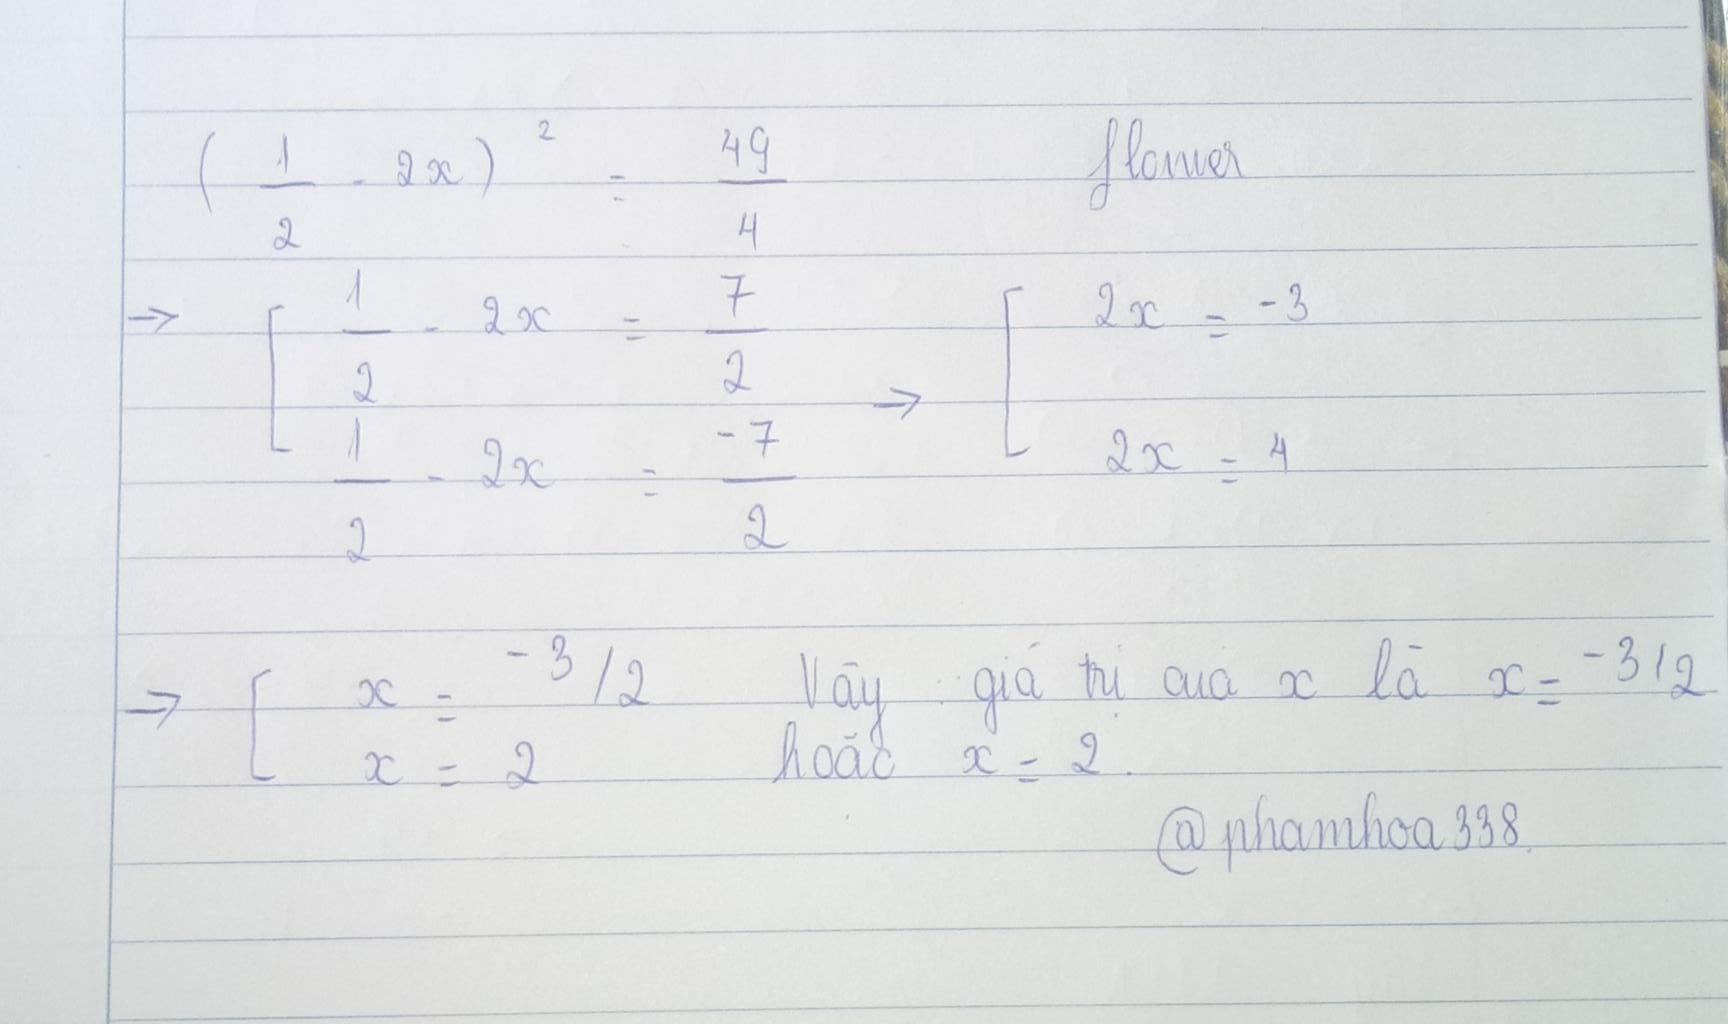 (1/2 - 2x)² = 49/4 flower
→ [ 1/2 - 2x = 7/2 → [ 2x = -3
1/2 - 2x = -7/2 2x = 4
→ [ x = -3/2 Vāy giá tri cua x là x = -3/2
x = 2 hoăc x = 2.
@phamhoa338